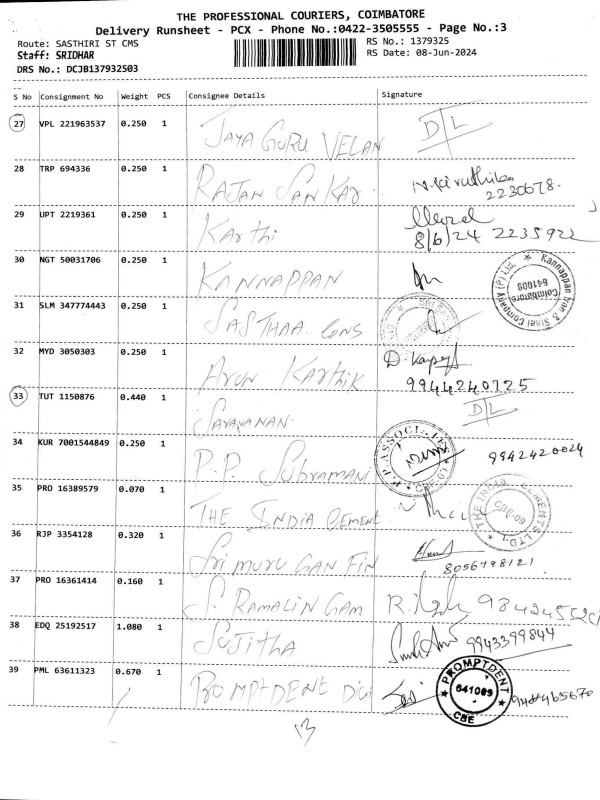 THE PROFESSIONAL COURIERS, COIMBATORE
Delivery Runsheet - PCX - Phone No.:0422-3505555 - Page No.:3
Route: SASTHIRI ST CMS RS No.: 1379325
Staff: SRIDHAR RS Date: 08-Jun-2024
DRS No.: DCJB137932503
S No Consignment No Weight PCS Consignee Details Signature
27 VPL 221963537 0.250 1 JAYA GURU VELAN D/L
28 TRP 694336 0.250 1 RAJAN SANKAR
2230678.
29 UPT 2219361 0.250 1 Karthi
8/6/24 2235922
30 NGT 50031706 0.250 1 KANNAPPAN
Kannappan Iron & Steel Company (P) Ltd. Coimbatore 641009
31 SLM 347774443 0.250 1 SASTHAA CONS
32 MYD 3050303 0.250 1 Arun Karthik
9944240725
33 TUT 1150876 0.440 1 SARAVANAN D/L
34 KUR 7001544849 0.250 1 P.P. Subramani 9942420024
35 PRO 16389579 0.070 1 THE INDIA CEMENT
THE INDIA CEMENTS LTD. CBE-09
36 RJP 3354128 0.320 1 Sri MURUGAN FIN
8056798121
37 PRO 16361414 0.160 1 S. RAMALINGAM
38 EDQ 25192517 1.080 1 SUJITHA 9943399844
39 PML 63611323 0.670 1 PROMPTDENT DIGI
PROMPTDENT 641009 CBE
13